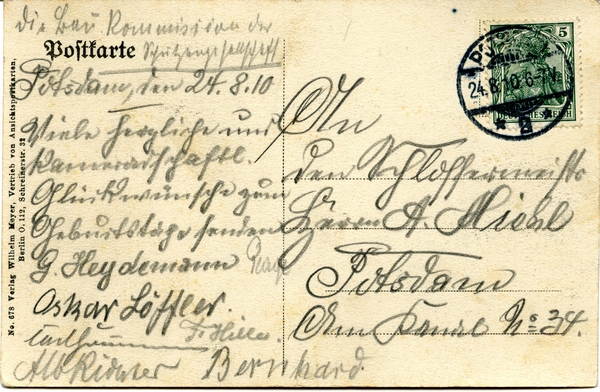 die Bau Kommission der
Schützengesellschaft
Postkarte
Potsdam, den 24.8.10
Viele herzliche und
kameradschaftl.
Glückwünsche zum
Geburtstage senden
G. Heydemann
Oskar Löffler.
Fr Hiller
Alb Richter Bernhard.
An
den Schlossermeister
Herrn A. Miehl
Potsdam
Am Kanal No 34.
5
DEUTSCHES REICH
24.8.10.6-7
a
No. 678 Verlag Wilhelm Meyer, Vertrieb von Ansichtspostkarten.
Berlin O. 112, Schreinerstr. 32